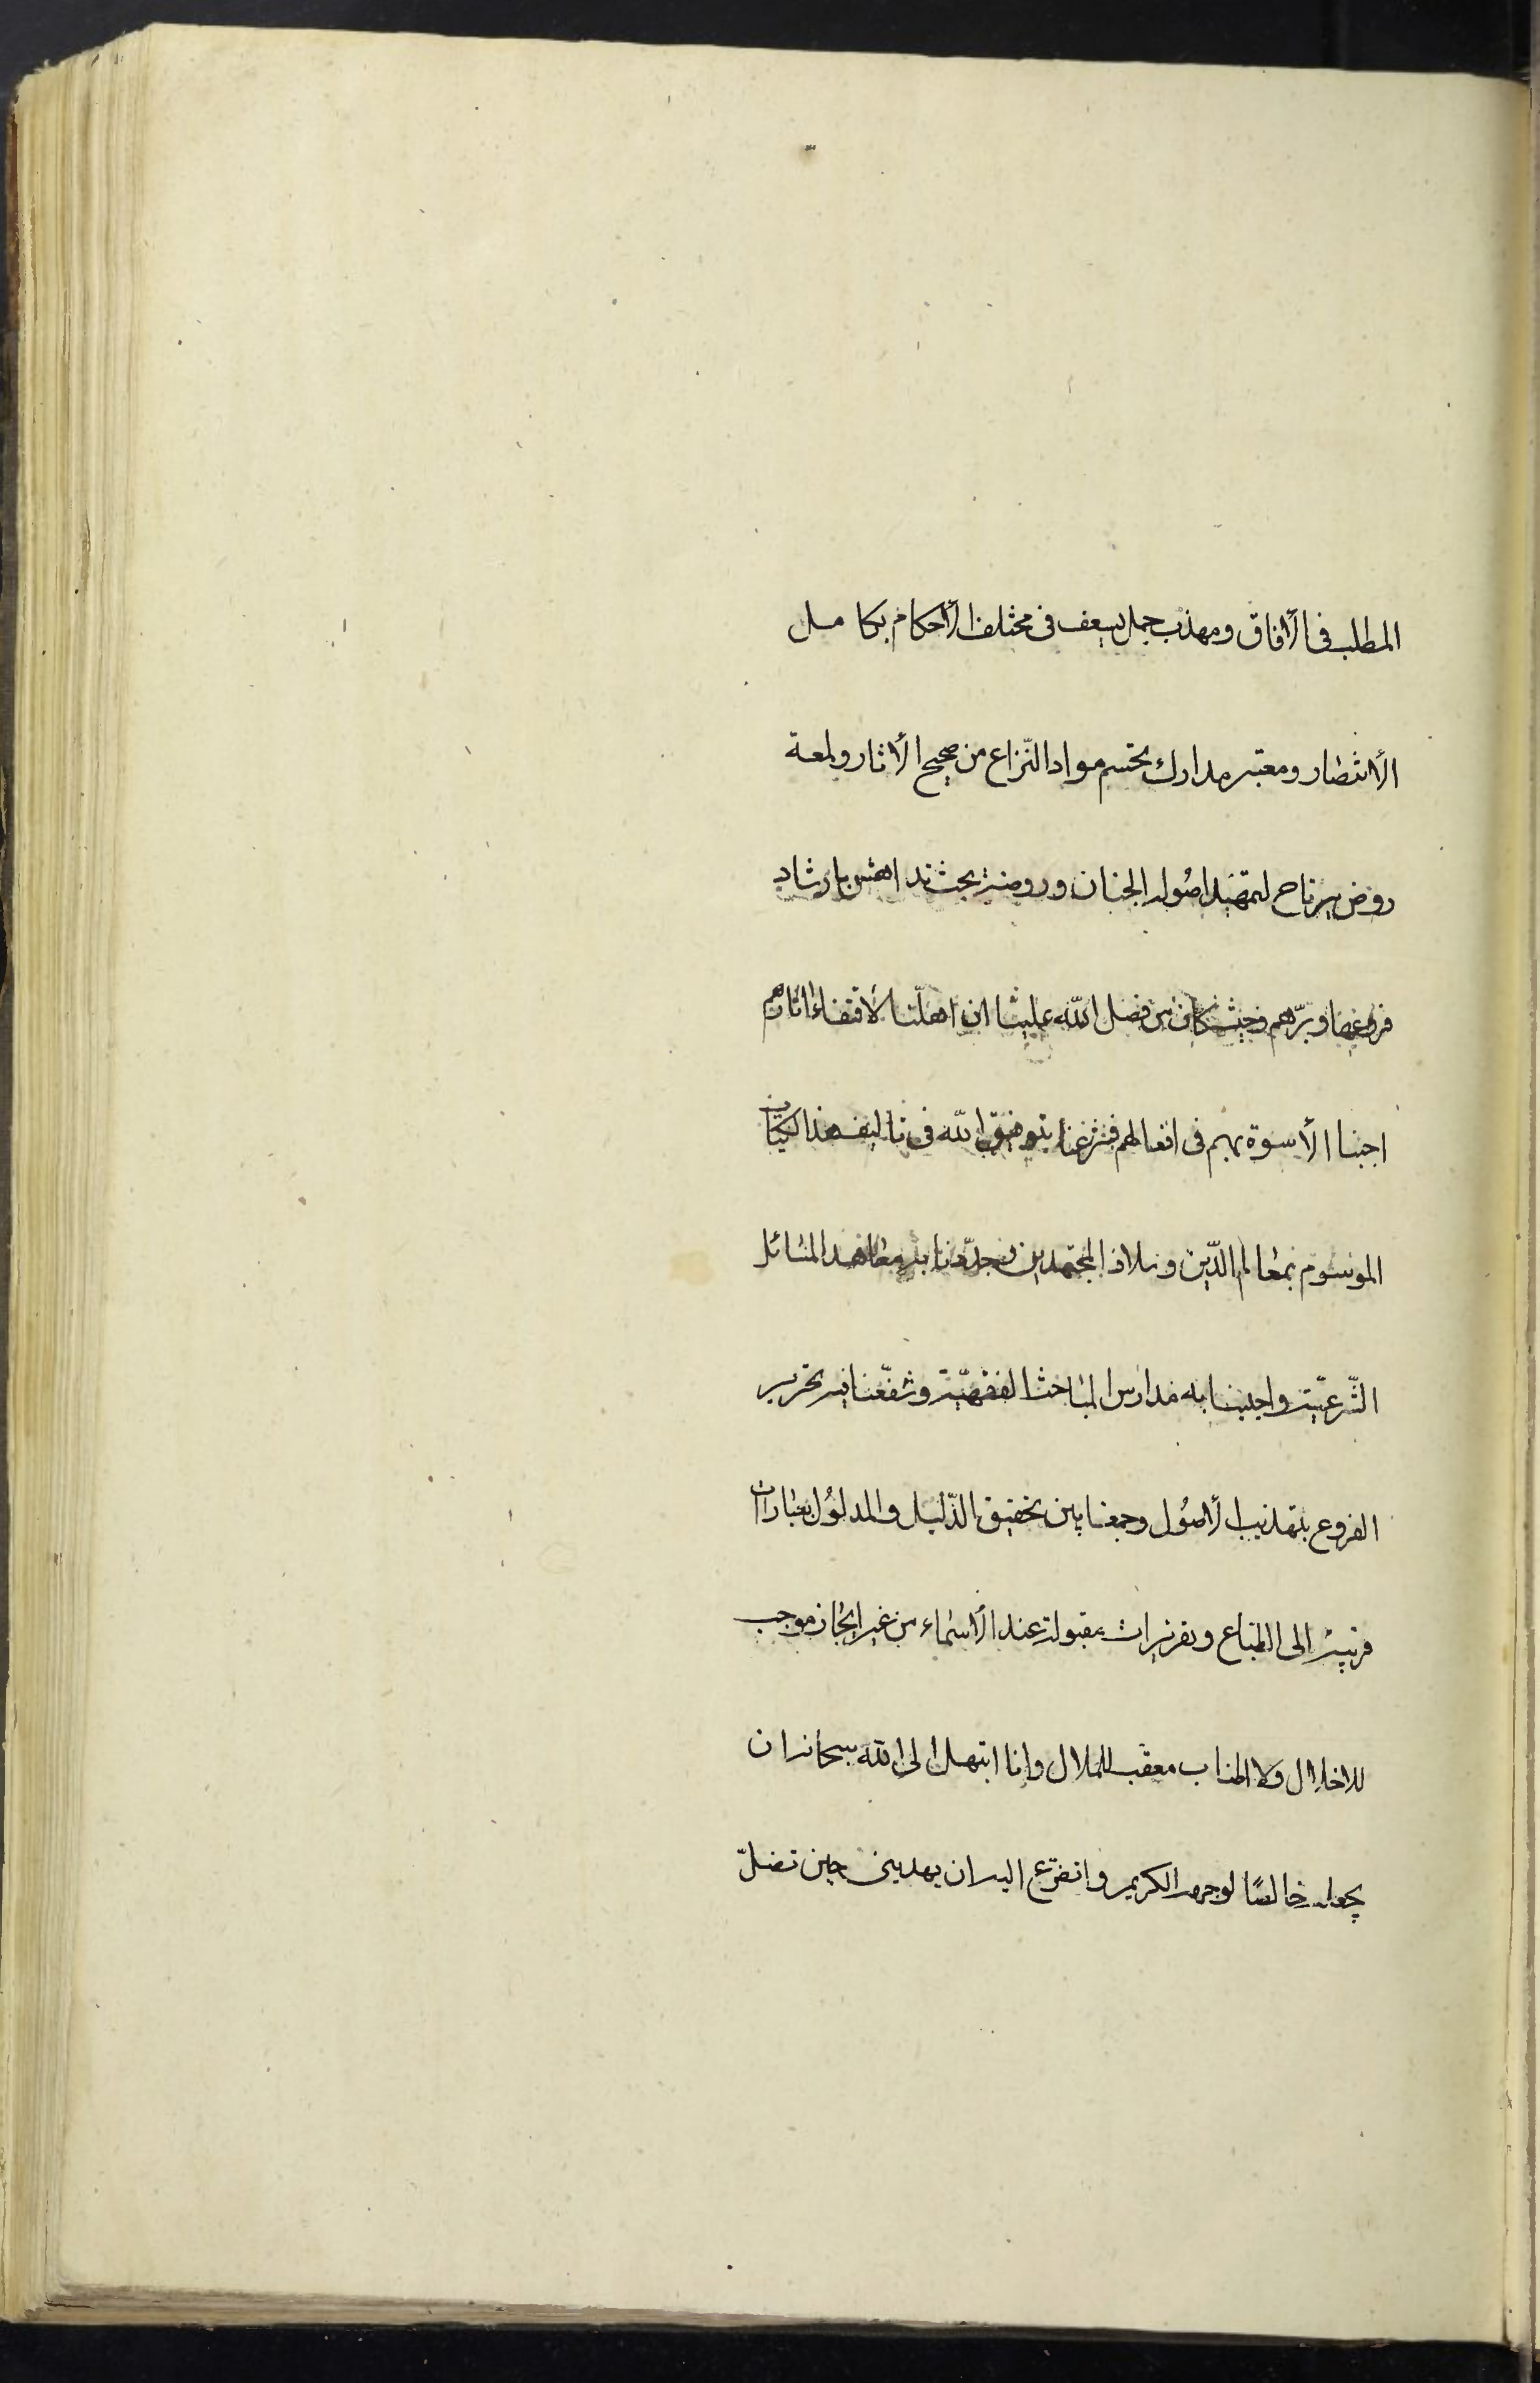 المطلب فى الأفاق ومهذب جمل يسعف فى مختلف الأحكام بكامل
الأنتظار ومعتبر مدارك يحتسم مواد النّزاع من صحيح الأثار ولمعة
روض يرتاح لتمهيد اصُول الجنان وروضة بحث تدهش بارشاد
فروعها وبرّهم وحيث كان من فضل اللّه علينا ان اهلّنا لأقتفاء اثارهم
اجبنا الأسوة بهم فى افعالهم فشرعنا بتوفيق اللّه فى تاليف هذا الكتاب
الموسوم بمعالم الدّين وملاذ المجتهدين وجدّدنا به معاهد المسائل
الشّرعيّة واحيينا به مدارس المباحث الفقهيّة وشفّعنا فيه تحرير
الفروع بتهذيب الأصُول وجمعنا بين تحقيق الدّليل والمدلوُل بعبارات
قريبة الى الطباع وتقريرات مقبولة عند الأسماع من غير ايجاز موجب
للاخلال ولا اطناب معقب للملال وانا ابتهل الى اللّه سبحانه ان
يجعله خالصًا لوجهه الكريم واتضرّع اليه ان يهدينى حين تضلّ